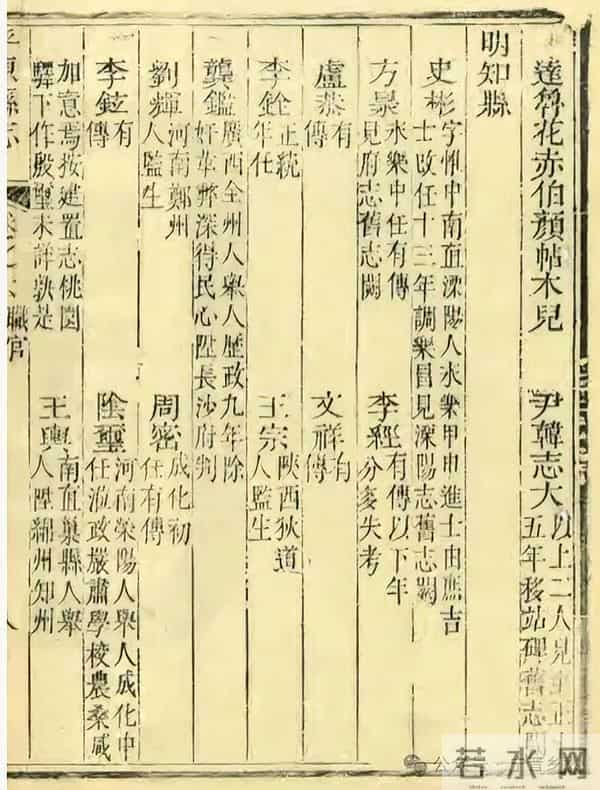 達魯花赤伯顏帖木兒
尹韓志大
以上二人見至正
五年移站碑舊志闕
明知縣
史彬
字惟中南直溧陽人永樂甲申進士由庶吉
士改任十三年調樂昌見溧陽志舊志闕
方
永樂中任有傳
見府志舊志闕
李經
有傳以下年
分多失考
盧恭
有
傳
文祥
有
傳
李銓
正統
年任
王宗
陝西狄道
人監生
龔鑑
廣西全州人舉人歷政九年除
奸革弊深得民心陞長沙府判
劉輝
河南鄭州
人監生
周密
成化初
任有傳
李鉉
有
傳
陰璽
河南滎陽人舉人成化中
任涖政嚴肅學校農桑咸
加意焉按建置志桃園
驛下作殷璽未詳孰是
王輿
南直巢縣人舉
人陞綿州知州
縣志
職官
八
公众号
若水网